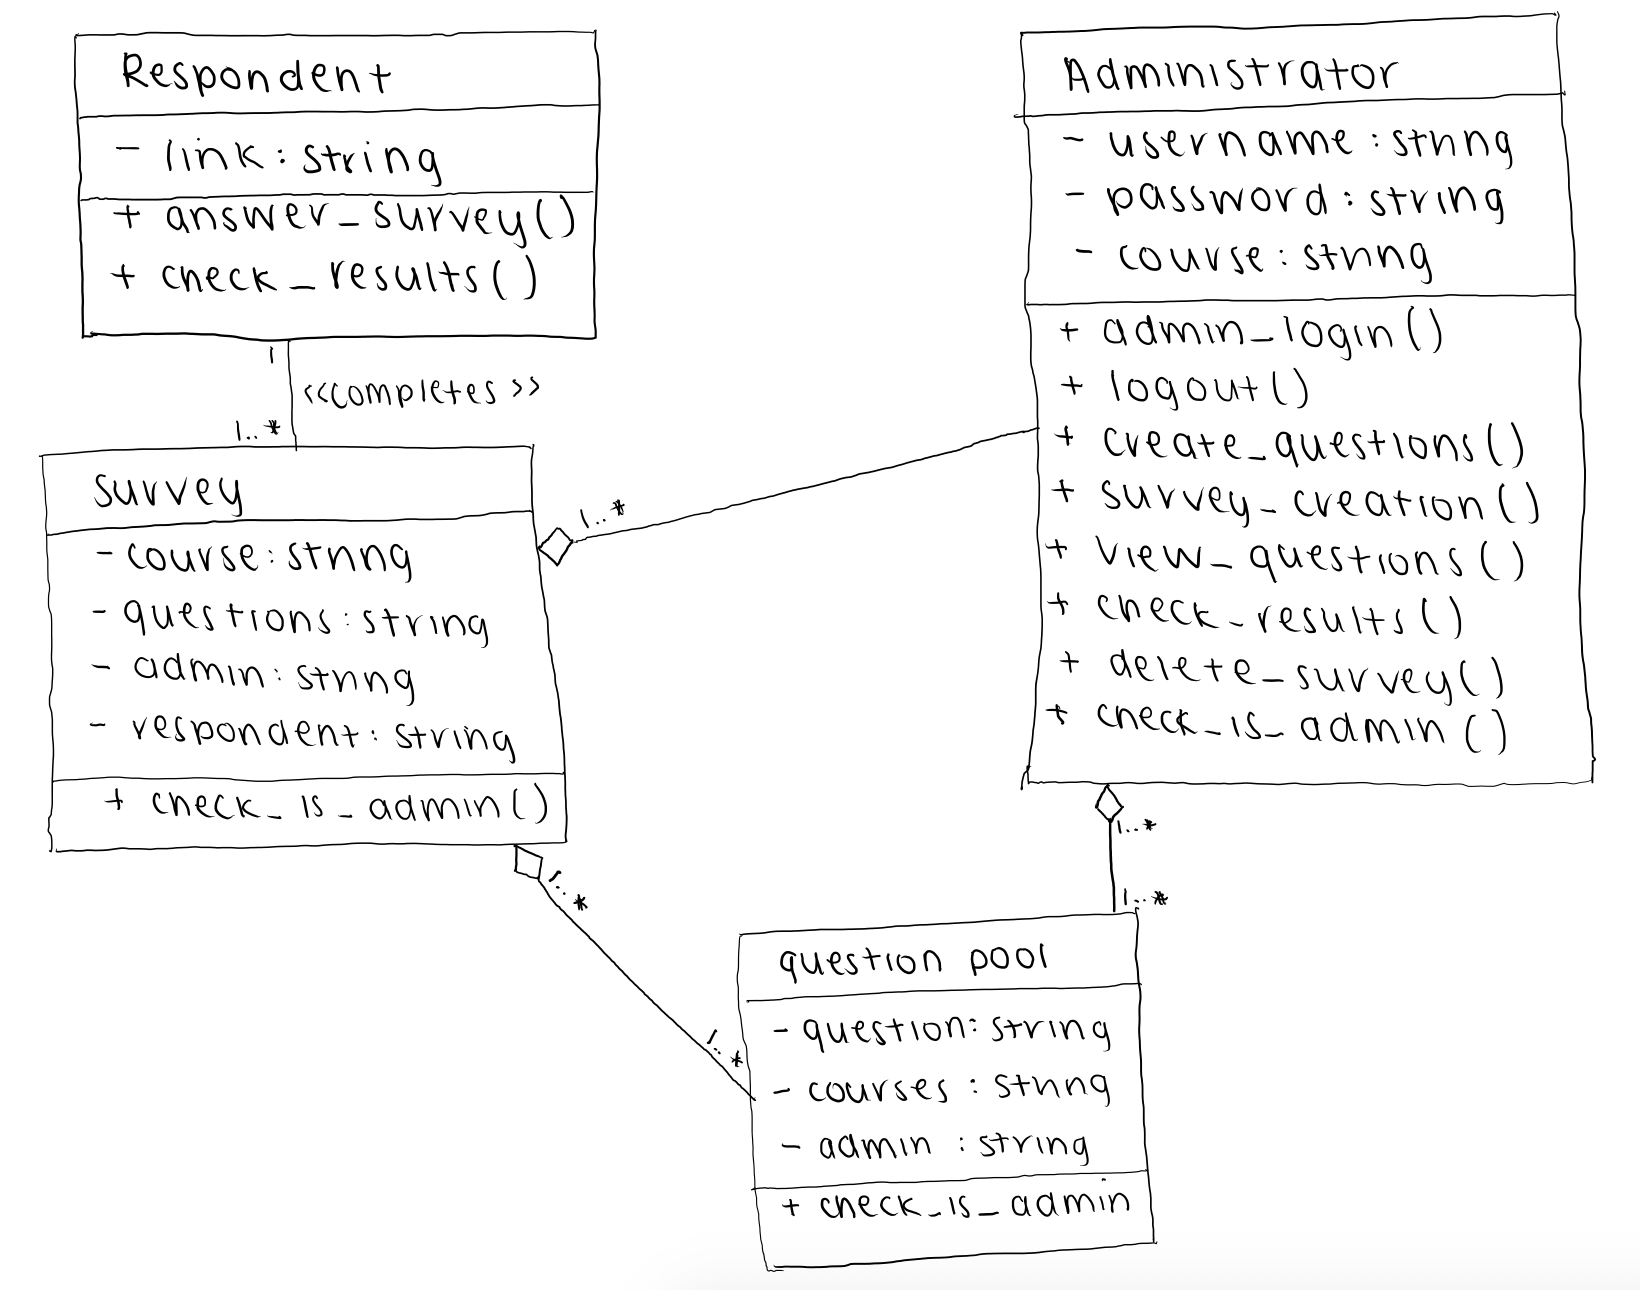 Respondent
- link : string
+ answer_survey()
+ check_results()
1
<<completes >>
1..*
survey
- course : string
- questions : string
- admin : string
- respondent : string
+ check_is_admin()
1..*
Administrator
- username : string
- password : string
- course : string
+ admin_login()
+ logout()
+ create_questions()
+ survey_creation()
+ view_questions()
+ check_results()
+ delete_survey()
+ check_is_admin()
1..*
1..*
1..*
1..*
question pool
- question : string
- courses : string
- admin : string
+ check_is_admin